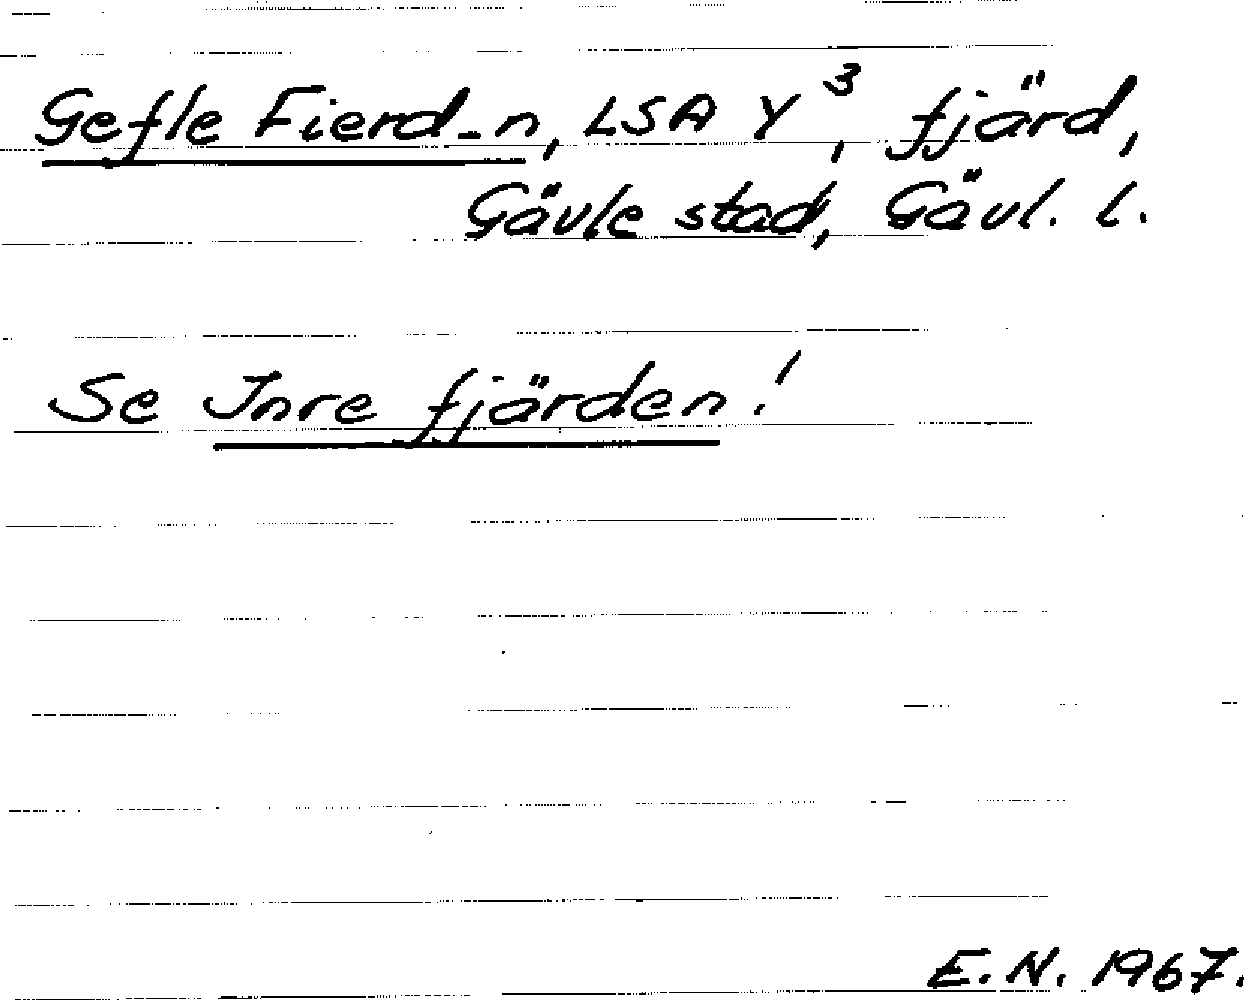 Gefle Fierd-n, LSA Y³, fjärd,
Gävle stad, Gävl. l.
Se Inre fjärden!
E.N. 1967.